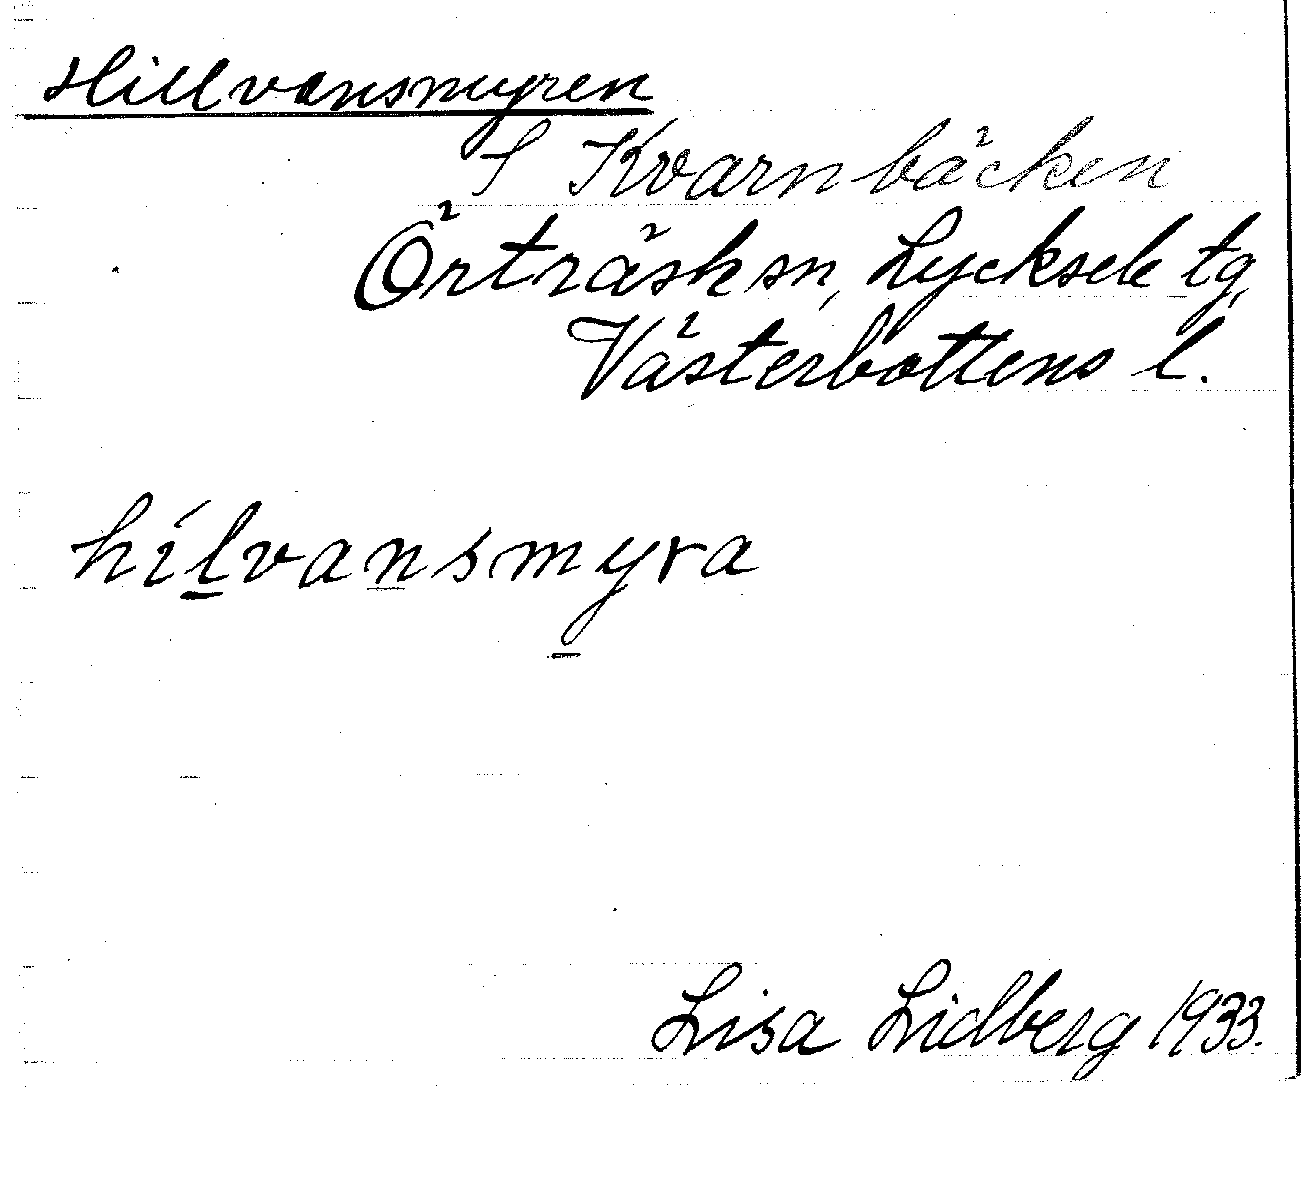 Hillvansmyren
S Kvarnbäcken
Örträsk sn, Lycksele tg,
Västerbottens l.
hílvansmyra
Lisa Lidberg 1933.